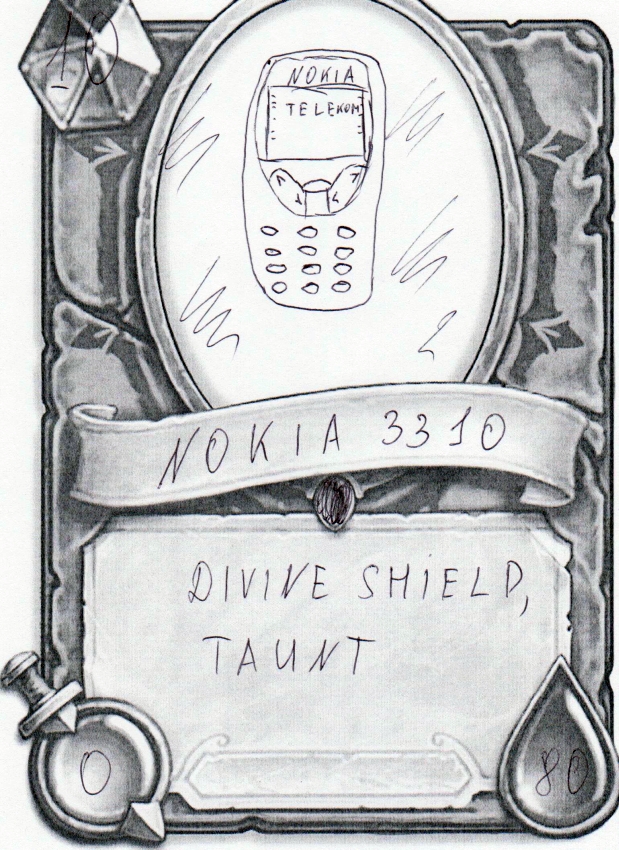 10
NOKIA
TELEKOM
NOKIA 3310
DIVINE SHIELD,
TAUNT
0
80